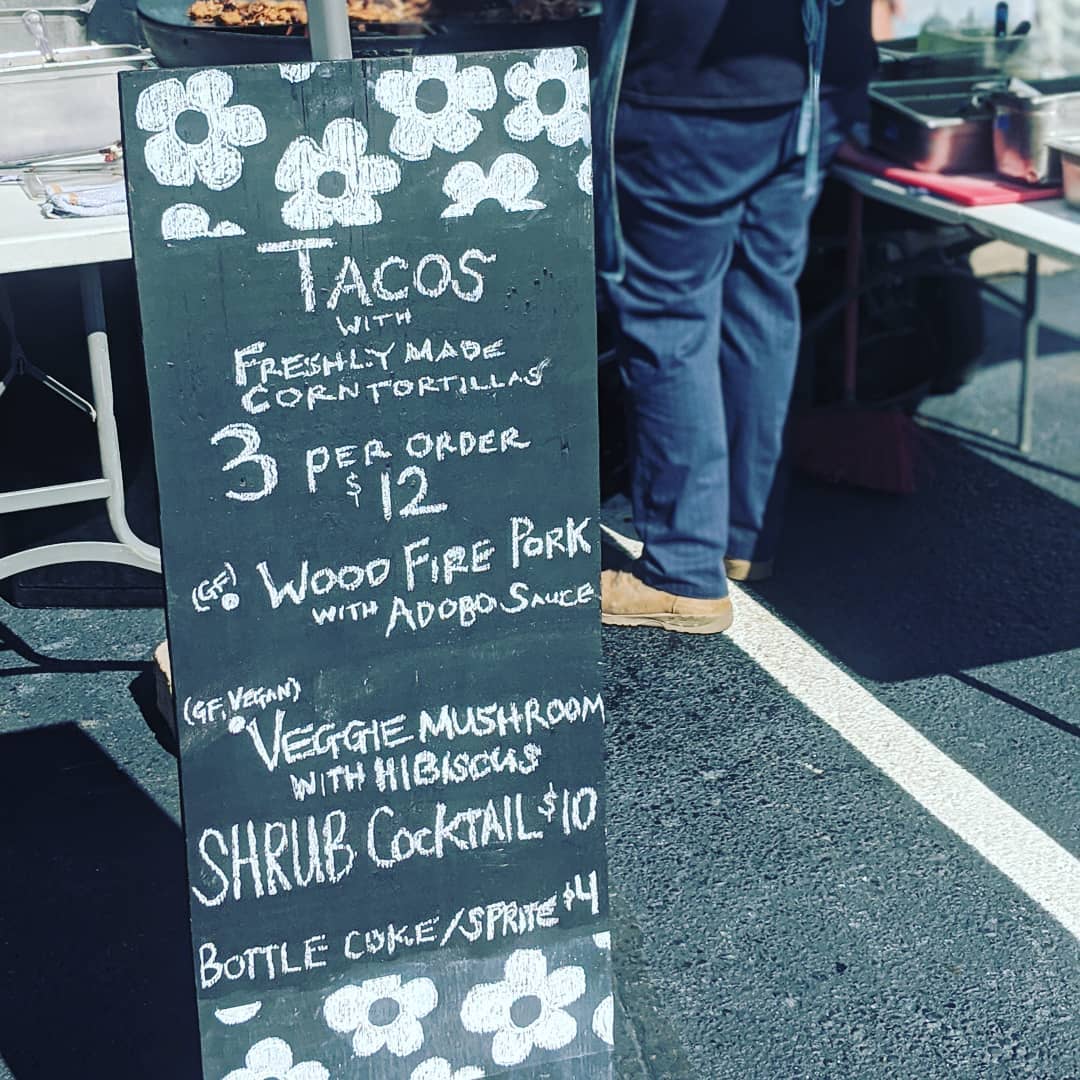 TACOS
WITH
FRESHLY MADE
CORN TORTILLAS
3 PER ORDER
$12
(GF) • WOOD FIRE PORK
WITH ADOBO SAUCE
(GF, VEGAN)
• VEGGIE MUSHROOM
WITH HIBISCUS
SHRUB COCKTAIL $10
BOTTLE COKE/SPRITE $4